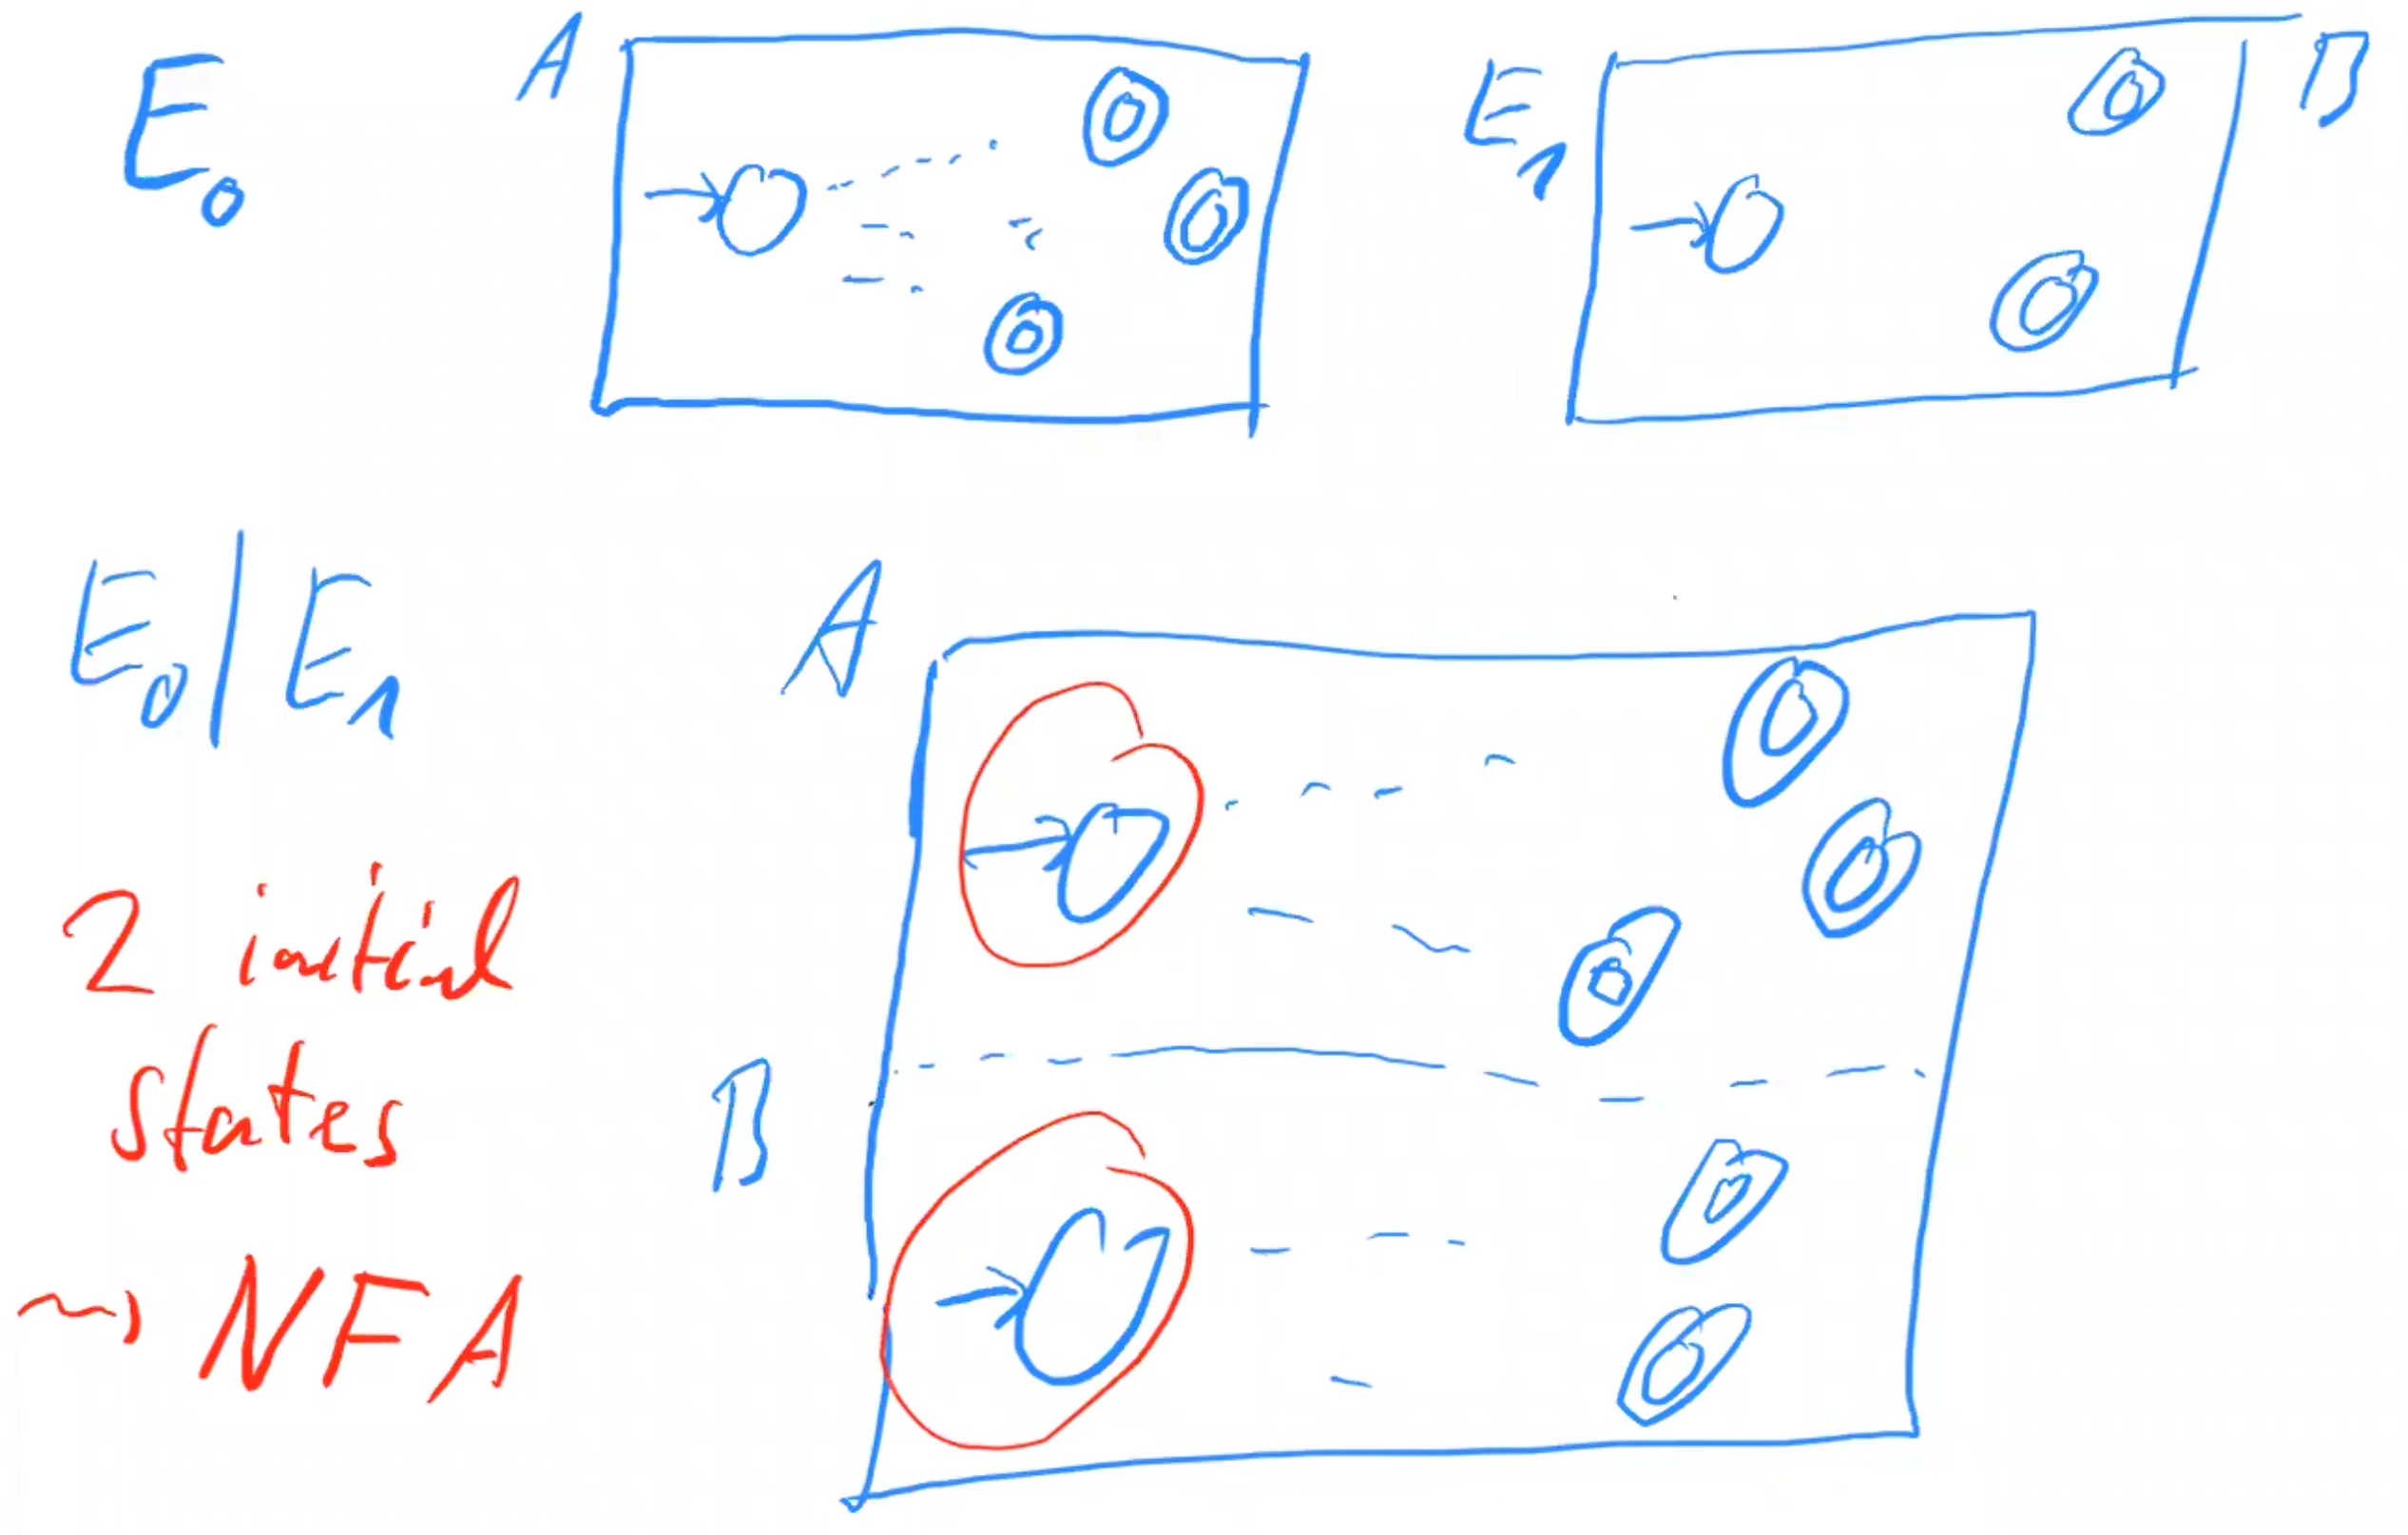 E₀ A E₁ B
E₀|E₁ A
2 initial
states
B
⇝ NFA